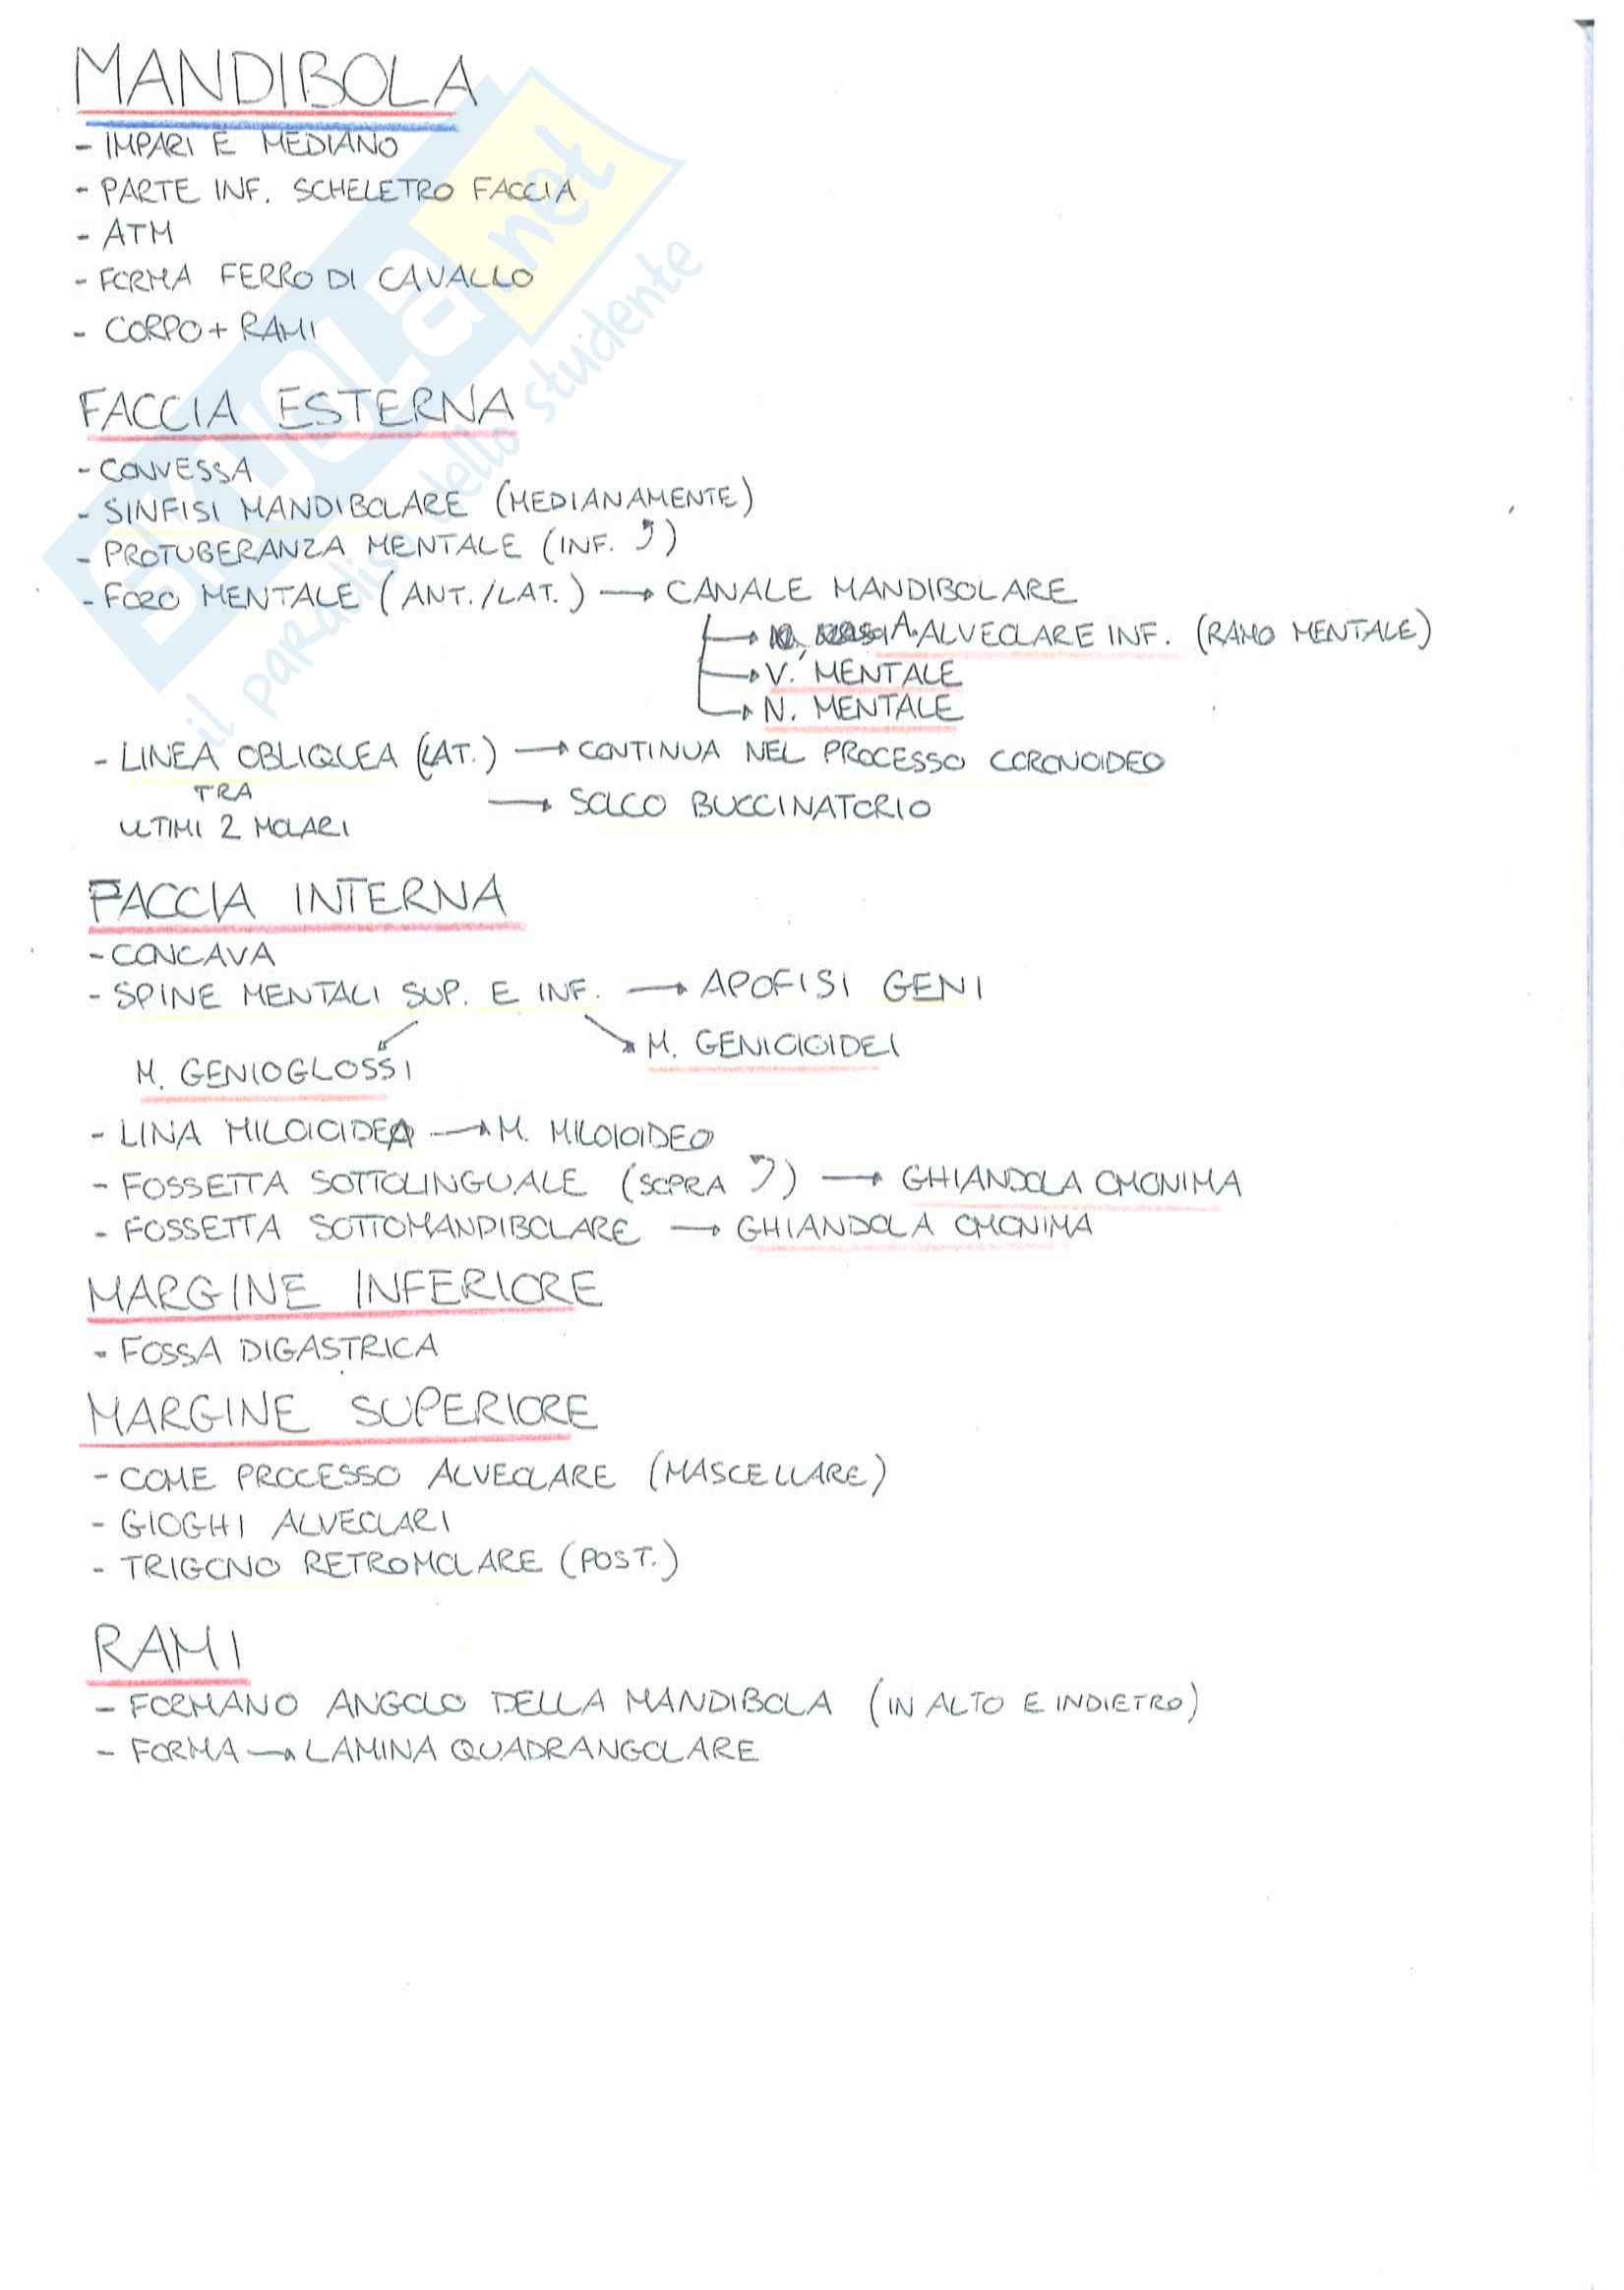 MANDIBOLA
- IMPARI E MEDIANO
- PARTE INF. SCHELETRO FACCIA
- ATM
- FORMA FERRO DI CAVALLO
- CORPO + RAMI
FACCIA ESTERNA
- CONVESSA
- SINFISI MANDIBOLARE (MEDIANAMENTE)
- PROTUBERANZA MENTALE (INF. )
- FORO MENTALE (ANT./LAT.) → CANALE MANDIBOLARE
→ A. ALVEOLARE INF. (RAMO MENTALE)
→ V. MENTALE
→ N. MENTALE
- LINEA OBLIQUA (LAT.) → CONTINUA NEL PROCESSO CORONOIDEO
TRA → SOLCO BUCCINATORIO
ULTIMI 2 MOLARI
FACCIA INTERNA
- CONCAVA
- SPINE MENTALI SUP. E INF. → APOFISI GENI
M. GENIOGLOSSI M. GENIOIOIDEI
- LINA MILOIOIDEA → M. MILOIOIDEO
- FOSSETTA SOTTOLINGUALE (SOPRA ) → GHIANDOLA OMONIMA
- FOSSETTA SOTTOMANDIBOLARE → GHIANDOLA OMONIMA
MARGINE INFERIORE
- FOSSA DIGASTRICA
MARGINE SUPERIORE
- COME PROCESSO ALVEOLARE (MASCELLARE)
- GIOGHI ALVEOLARI
- TRIGONO RETROMOLARE (POST.)
RAMI
- FORMANO ANGOLO DELLA MANDIBOLA (IN ALTO E INDIETRO)
- FORMA → LAMINA QUADRANGOLARE
SKUOLA.net
il paradiso dello studente